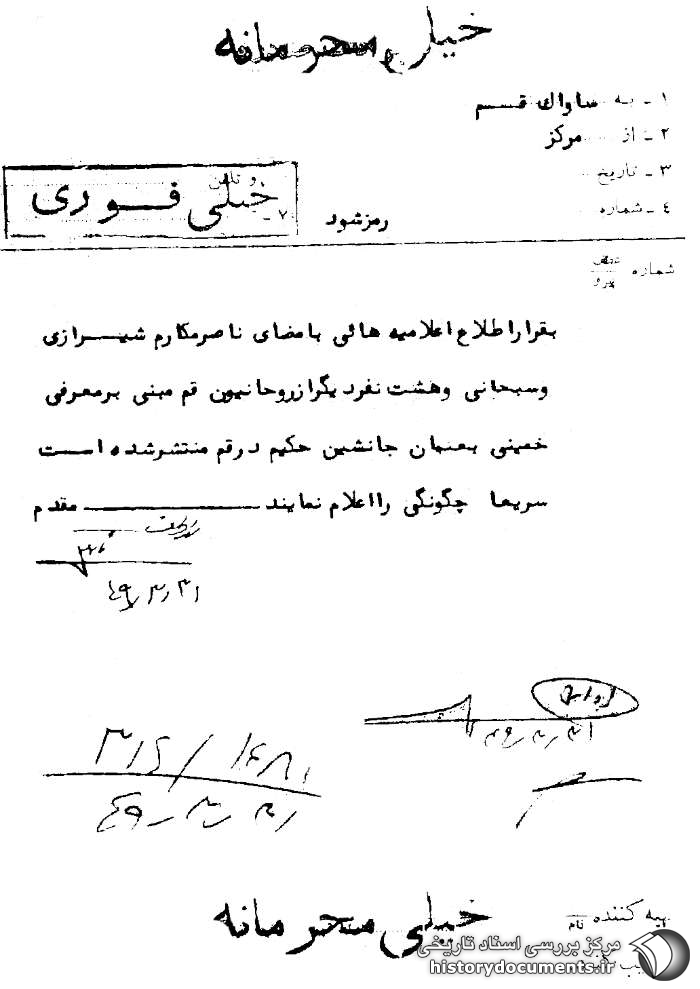 خیلی محرمانه
۱ - به ساواک قسم
۲ - از مرکز
۳ - تاریخ
۴ - شماره
خیلی فوری
۷ -
رمز شود
شماره
پیرو
بقرار اطلاع اعلامیه هائی بامضای ناصر مکارم شیرازی
وسبحانی وهشت نفر دیگر از روحانیون قم مبنی بر معرفی
خمینی بعنوان جانشین حکیم در قم منتشر شده است
سریعا چگونگی را اعلام نمایند مقدم
۴۹٫۳٫۳۱
۴۹٫۳٫۳۱
۳۱۶ / ۱۶۸۱
۴۹٫۳٫۳۱
یه کننده
نام
خیلی محرمانه
مرکز بررسی اسناد تاریخی
historydocuments.ir